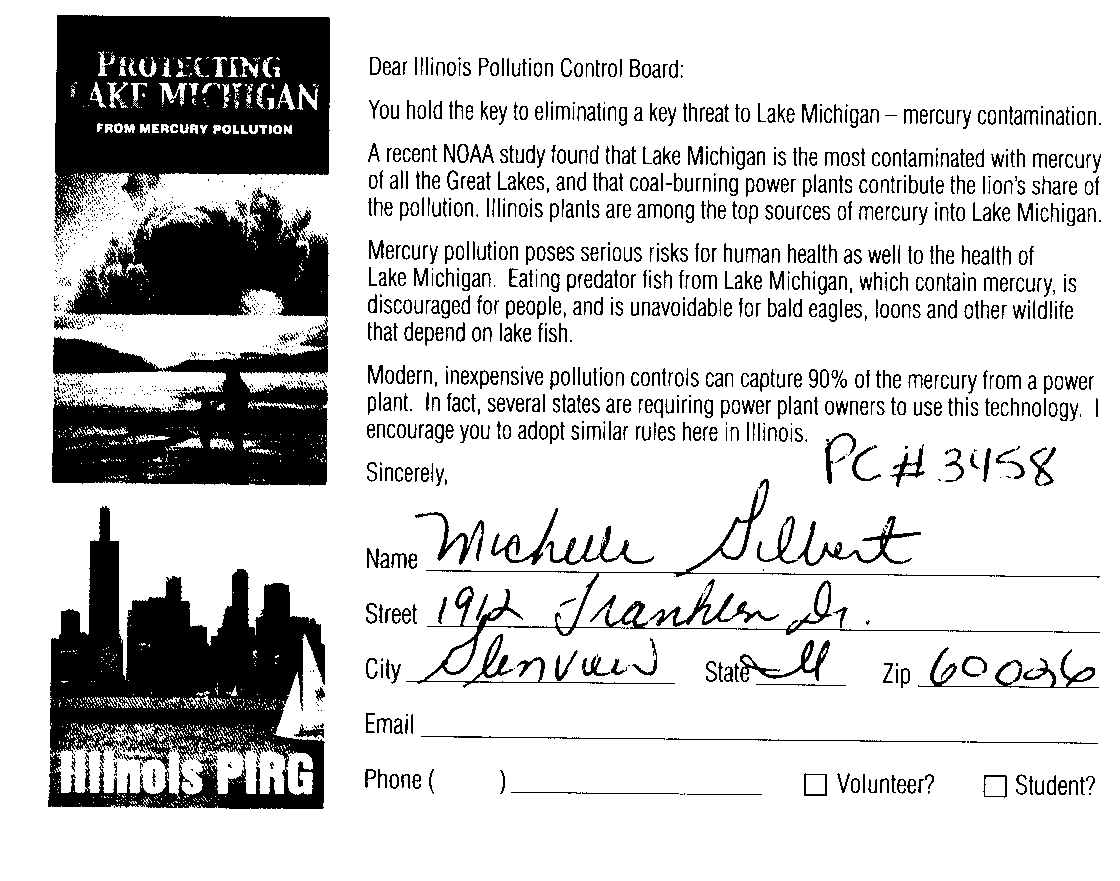 PROTECTING
LAKE MICHIGAN
FROM MERCURY POLLUTION
Illinois PIRG
Dear Illinois Pollution Control Board:
You hold the key to eliminating a key threat to Lake Michigan – mercury contamination.
A recent NOAA study found that Lake Michigan is the most contaminated with mercury
of all the Great Lakes, and that coal-burning power plants contribute the lion's share of
the pollution. Illinois plants are among the top sources of mercury into Lake Michigan.
Mercury pollution poses serious risks for human health as well to the health of
Lake Michigan. Eating predator fish from Lake Michigan, which contain mercury, is
discouraged for people, and is unavoidable for bald eagles, loons and other wildlife
that depend on lake fish.
Modern, inexpensive pollution controls can capture 90% of the mercury from a power
plant. In fact, several states are requiring power plant owners to use this technology. I
encourage you to adopt similar rules here in Illinois.
PC # 3458
Sincerely,
Name Michelle Gilbert
Street 1912 Franklin Dr.
City Glenview State Il Zip 60026
Email
Phone ( )
Volunteer? Student?